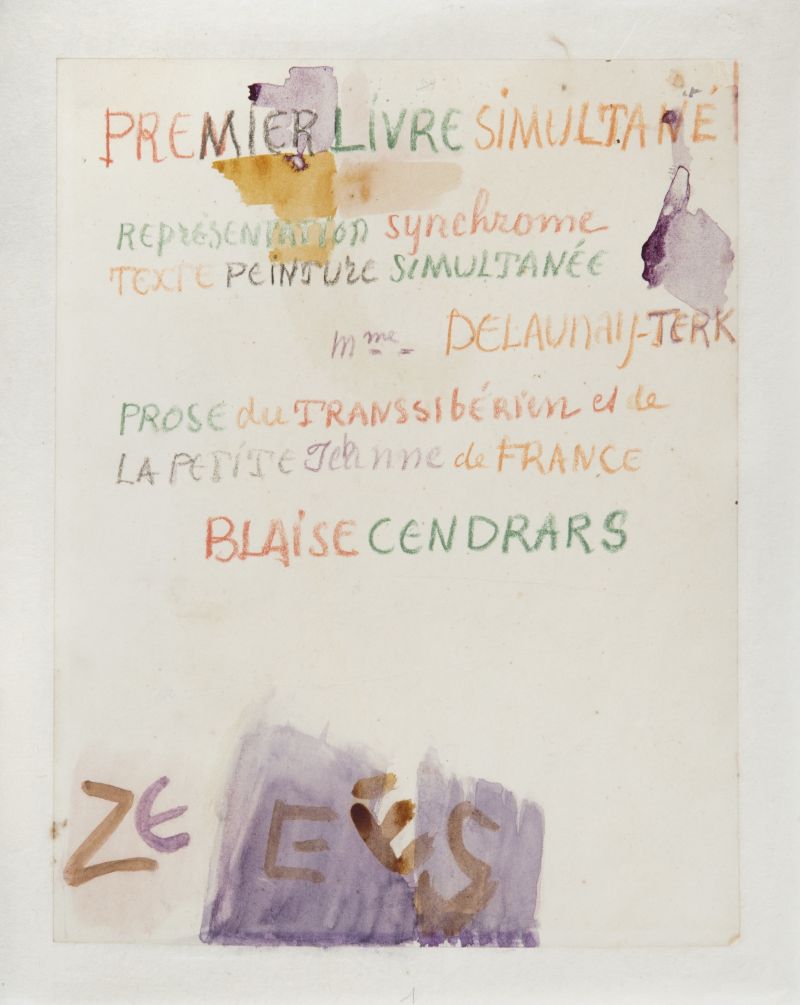 PREMIER LIVRE SIMULTANÉ
REPréSENTATTION synchrome
TEXTE PEINTURE SIMULTANÉE
Mme DELAUNAY-TERK
PROSE du TRANSSIBÉRIEN et de
LA PETITE Jehanne de FRANCE
BLAISE CENDRARS